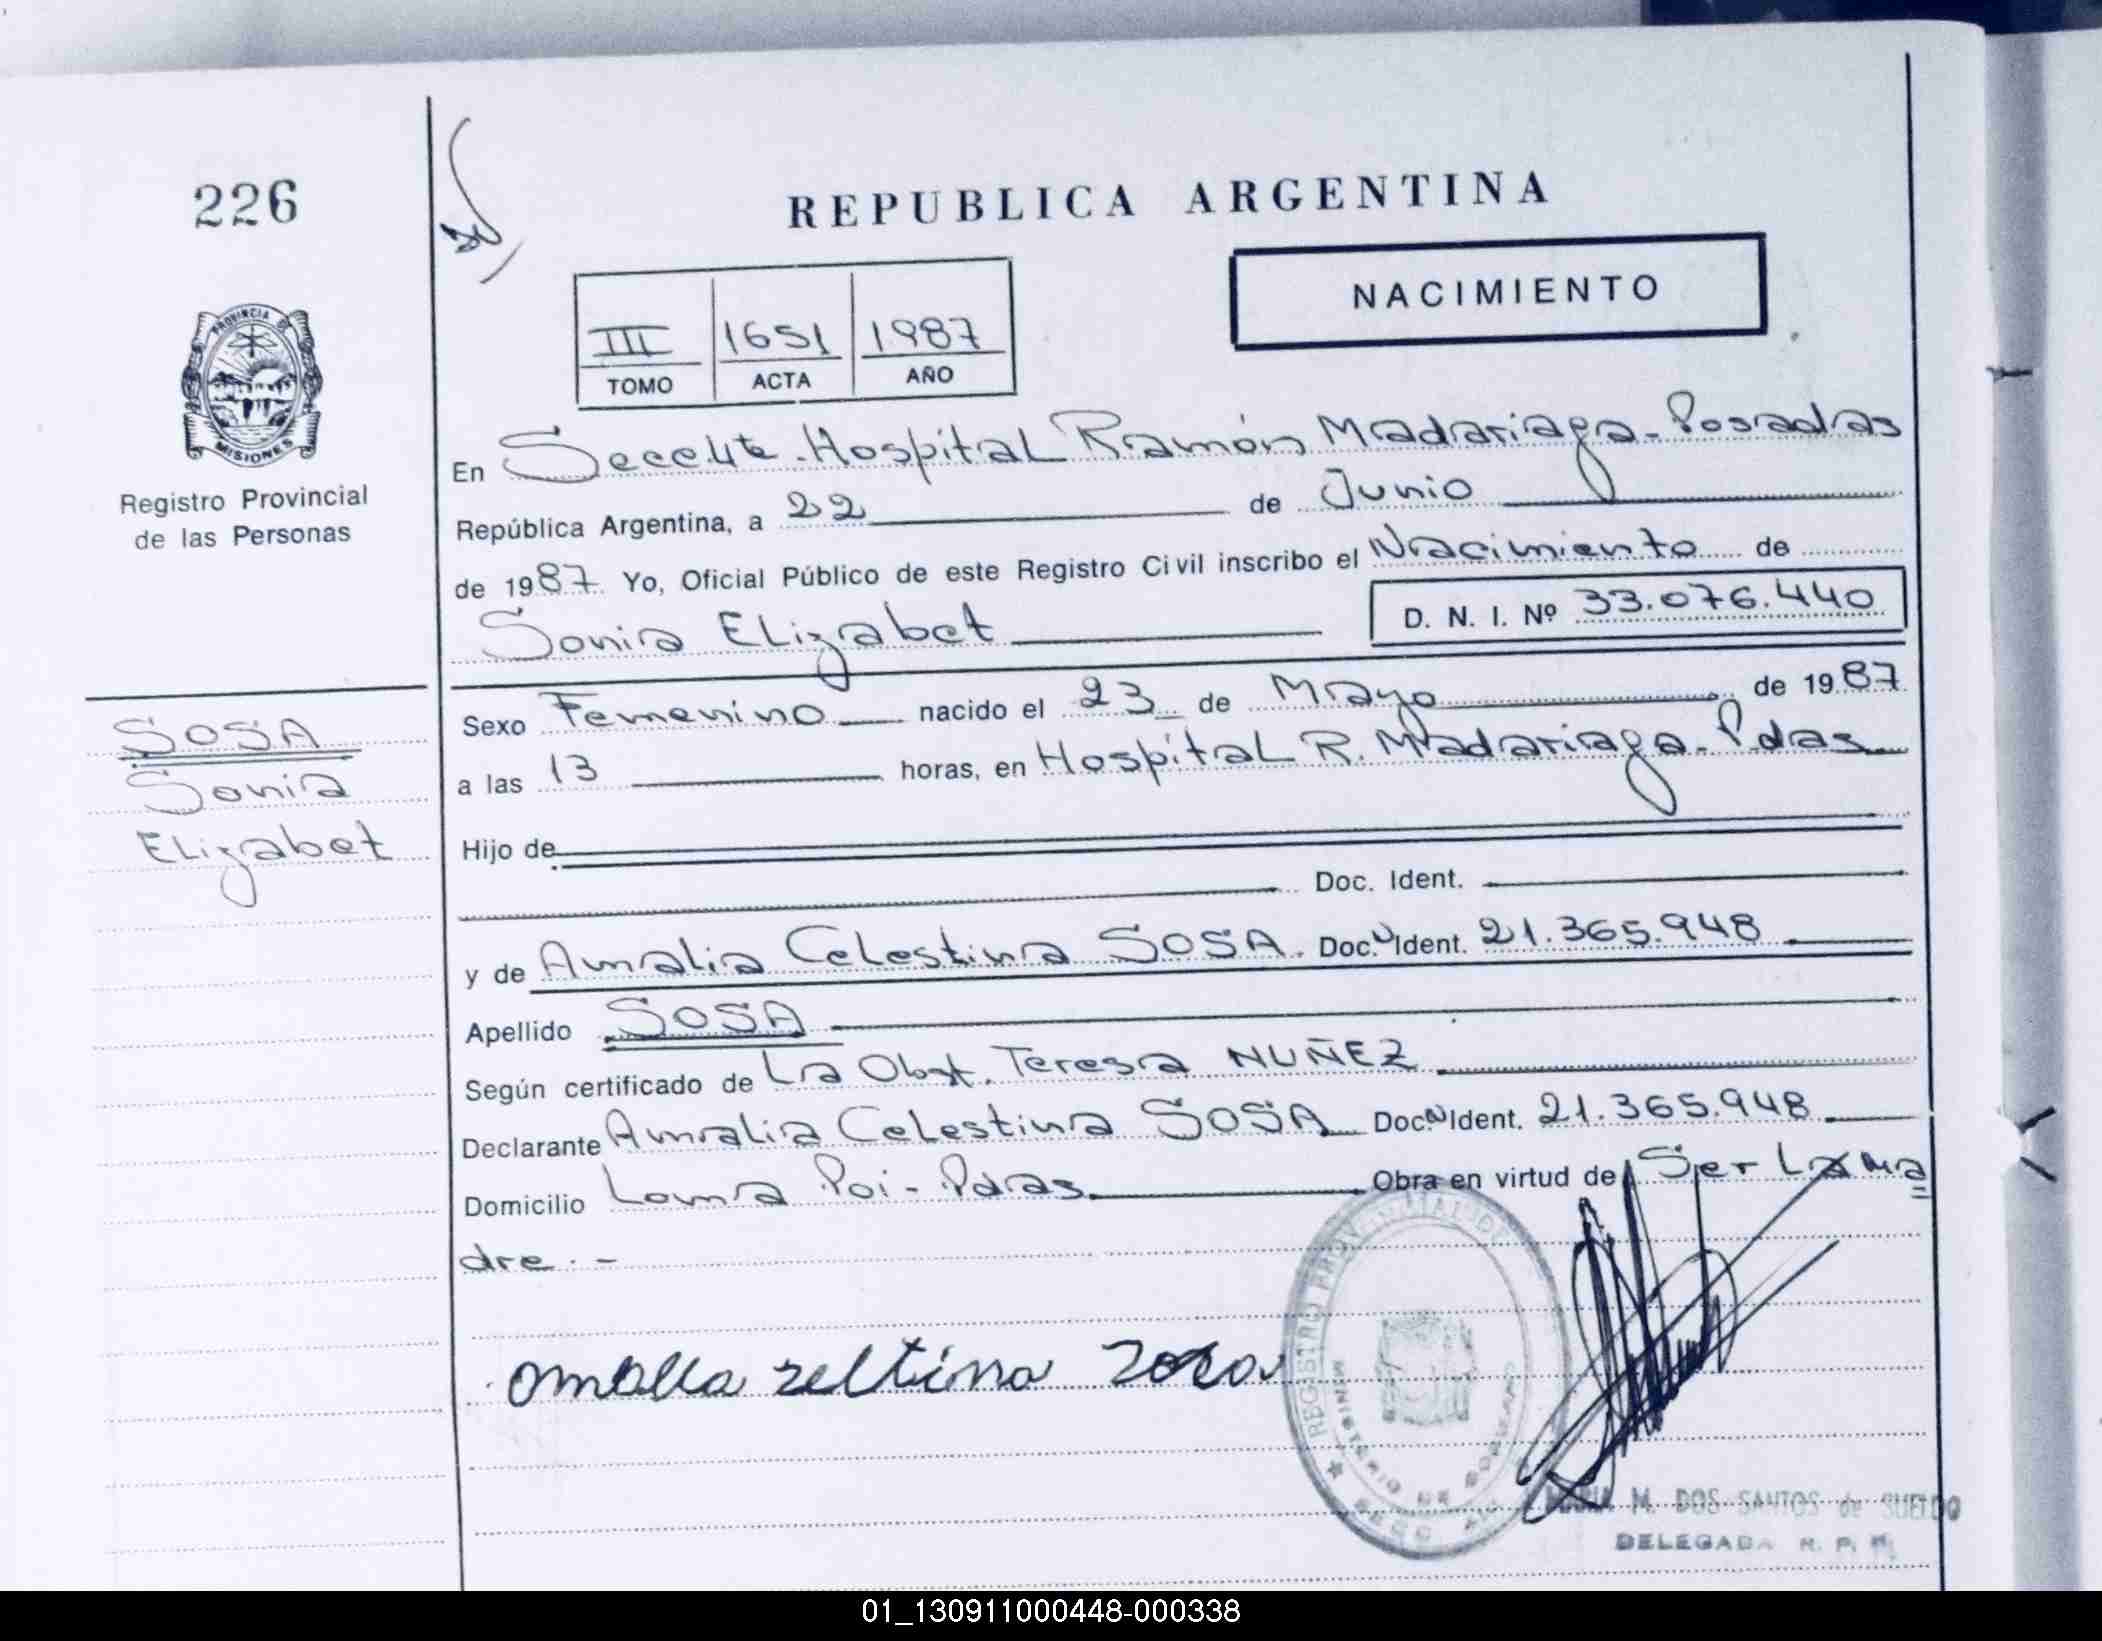 226
REPUBLICA ARGENTINA
NACIMIENTO
III 1651 1987
TOMO ACTA AÑO
PROVINCIA DE
MISIONES
Registro Provincial
de las Personas
En Hospital Ramón Madariaga - Posadas
República Argentina, a 22 de Junio
de 1987 Yo, Oficial Público de este Registro Civil inscribo el Nacimiento de
Sonia Elizabet D. N. I. Nº 33.076.440
SOSA
Sonia
Elizabet
Sexo Femenino nacido el 23 de Mayo de 1987
a las 13 horas, en Hospital R. Madariaga - Pdas
Hijo de
Doc. Ident.
y de Amalia Celestina SOSA. Doc. Ident. 21.365.948
Apellido SOSA
Según certificado de La Obst. Teresa NUÑEZ
Declarante Amalia Celestina SOSA Doc. Ident. 21.365.948
Domicilio Loma Poi - Pdas Obra en virtud de Ser La ma
dre . -
REGISTRO PROVINCIAL DE
MINISTERIO DE GOBIERNO
MARIA M. DOS SANTOS de SUELDO
DELEGADA R. P. P.
01_130911000448-000338